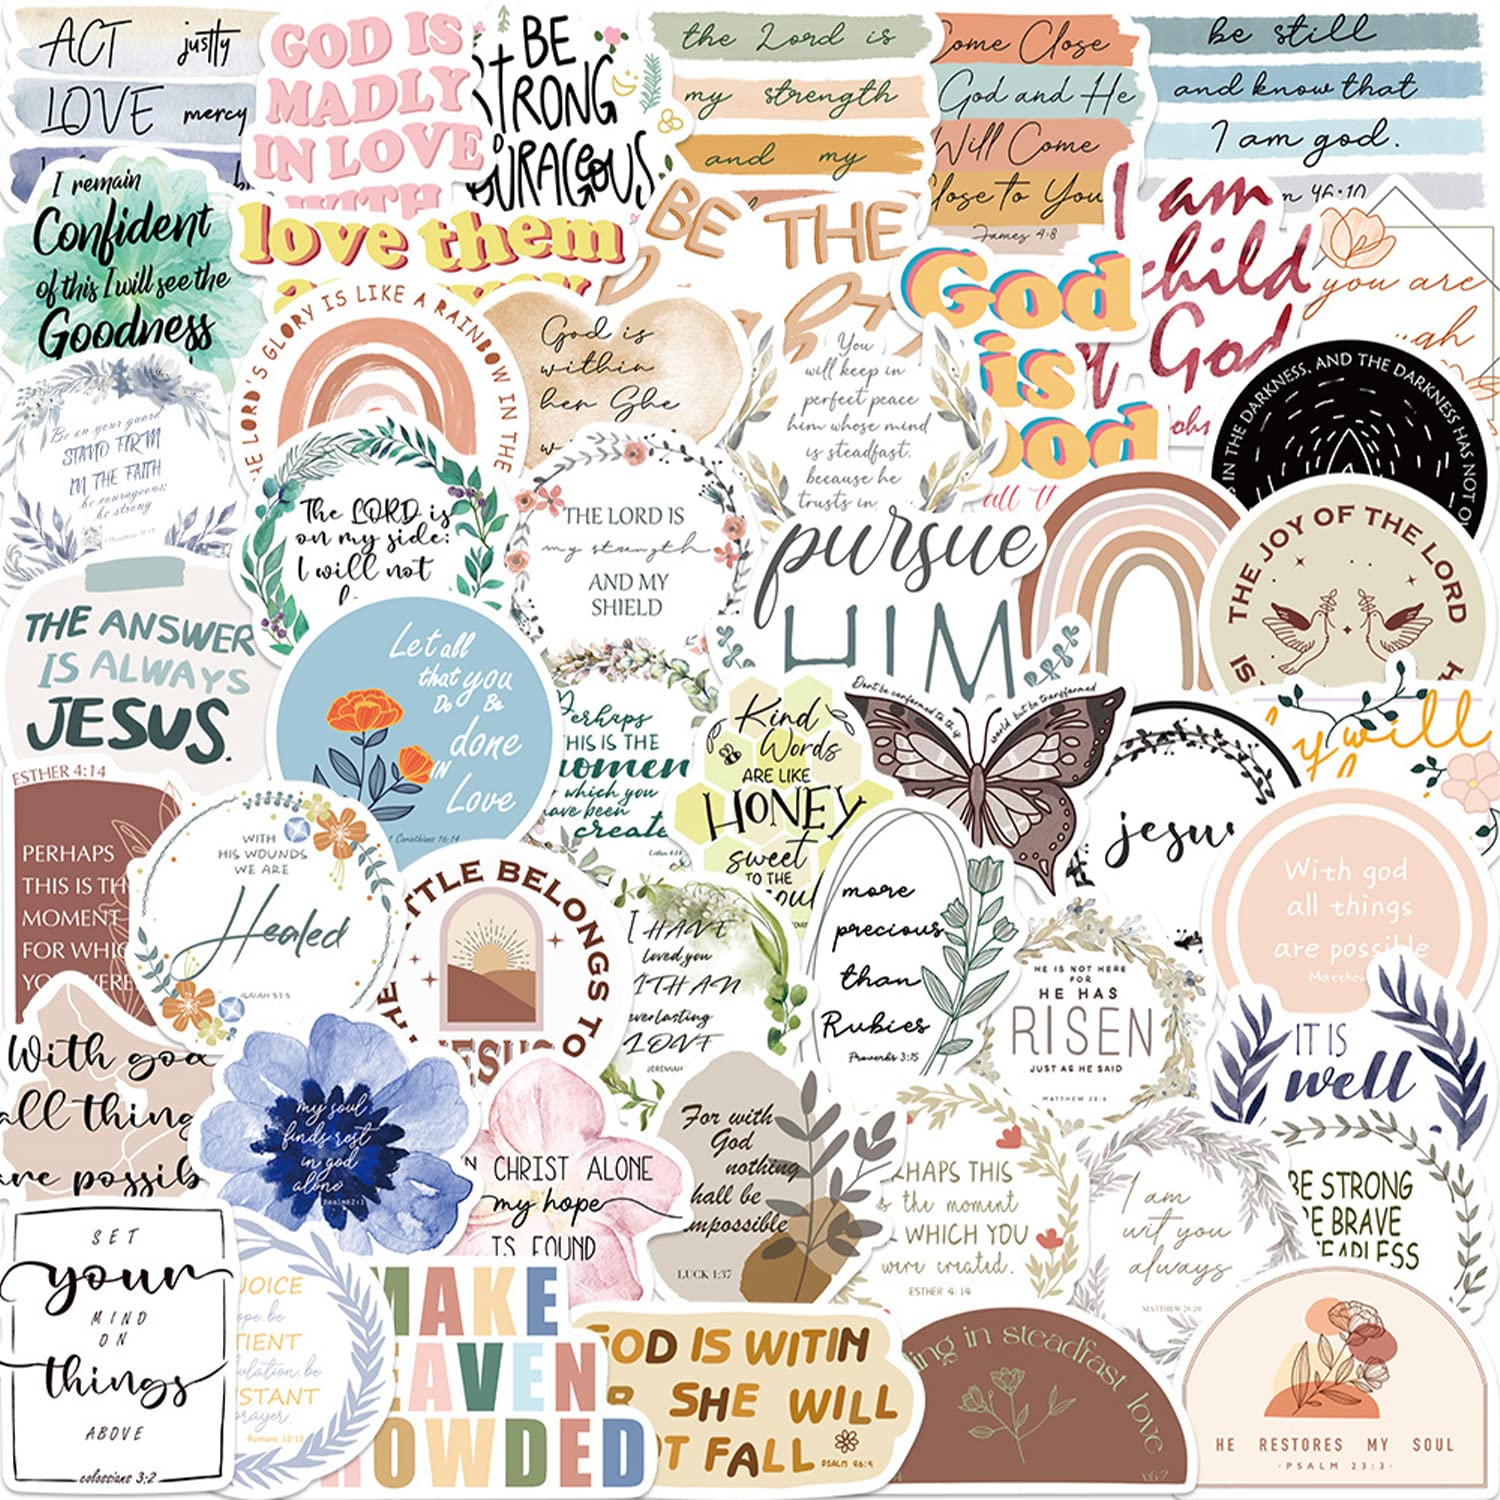 ACT justly
LOVE mercy
GOD IS
MADLY
IN LOVE
WITH
BE
STRONG
COURAGEOUS
the Lord is
my strength
and my
Come Close
God and He
Will Come
Close to You
James 4:8
be still
and know that
I am god.
46:10
I remain
Confident
of this I will see the
Goodness
love them
BE THE
God
is
good
all
I am
child
of God
John
you are
THE LORD'S GLORY IS LIKE A RAINBOW IN THE
God is
within
her She
You
will keep in
perfect peace
him whose mind
is steadfast.
because he
trusts in
IN THE DARKNESS, AND THE DARKNESS HAS NOT
Be on your guard
STAND FIRM
IN THE FAITH
be courageous;
be strong
The LORD is
on my side:
I will not
THE LORD IS
my strength
AND MY
SHIELD
pursue
HIM
THE JOY OF THE LORD
IS
THE ANSWER
IS ALWAYS
JESUS.
Let all
that you
Do Be
done
IN
Love
1 Corinthians 16:14
Perhaps
THIS IS THE
moment
which you
have been
create
Kind
Words
ARE LIKE
HONEY
sweet
TO THE
soul
Don't be conformed to th
world but be transformed
jesus
will
ESTHER 4:14
PERHAPS
THIS IS TH
MOMENT
FOR WHIC
YOU WERE
WITH
HIS WOUNDS
WE ARE
Healed
ISAIAH 53:5
TTLE BELONGS TO
THE
JESUS
I HAVE
loved you
WITH AN
everlasting
LOVE
JEREMIAH
more
precious
than
Rubies
Proverbs 3:15
HE IS NOT HERE
FOR
HE HAS
RISEN
JUST AS HE SAID
MATTHEW 28:6
With god
all things
are possible
Matthew
IT IS
well
With god
all thing
are possib
my soul
finds rest
in god
alone
Psalm62:1
IN CHRIST ALONE
my hope
IS FOUND
For with
God
nothing
shall be
impossible
LUCK 1:37
RHAPS THIS
is the moment
WHICH YOU
were created.
ESTHER 4:14
I am
wit you
always
MATTHEW 28:20
BE STRONG
BE BRAVE
FEARLESS
SET
your
MIND
ON
things
ABOVE
colossians 3:2
JOICE
hope. be
TIENT
ulation. be
STANT
prayer.
Romans 12:12
MAKE
EAVEN
ROWDED
GOD IS WITIN
R SHE WILL
OT FALL
PSALM 46:5
ing in steadfast love
HE RESTORES MY SOUL
·PSALM 23:3·